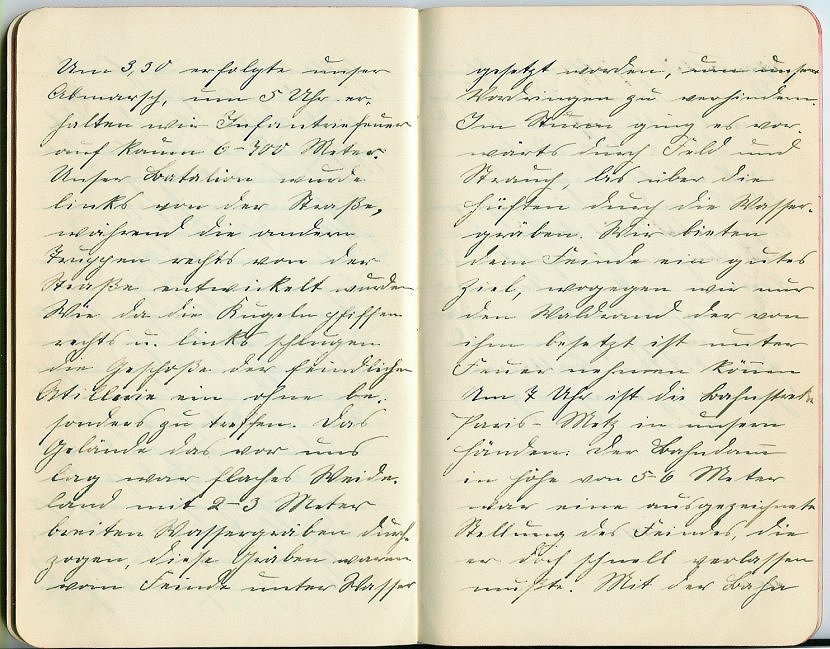 Um 3,30 erfolgte unser
Abmarsch, um 5 Uhr er-
halten wir Infantriefeuer
auf kaum 6-700 Meter.
Unser Batalion wurde
links von der Straße,
während die andern
Truppen rechts von der
Straße entwickelt wurden
Wie da die Kugeln pfiffen
rechts u. links schlugen
die Geschoße der feindlichen
Atillerie ein ohne be-
sonders zu treffen. Das
Gelände das vor uns
lag war flaches Weide-
land mit 2-3 Meter
breiten Wassergräben durch-
zogen, diese Gräben waren
vom Feinde unter Wasser
gesetzt worden, um unser
Vordringen zu verhindern.
Im Sturm ging es vor-
wärts durch Feld und
Strauch, bis über die
Hüften durch die Wasser-
gräben. Wir bieten
dem Feinde ein gutes
Ziel, wogegen wir nur
den Waldrand der von
ihm besetzt ist unter
Feuer nehmen können
Um 7 Uhr ist die Bahnstrecke
Paris-Metz in unsern
Händen. Der Bahndamm
in Höhe von 5-6 Meter
war eine ausgezeichnete
Stellung des Feindes, die
er doch schnell verlassen
mußte. Mit der Bahn